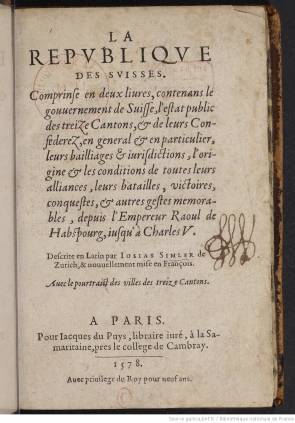 LA
REPVBLIQVE
DES SVISSES.
Comprinse en deux liures, contenans le
gouuernement de Suisse, l'estat public
des treize Cantons, & de leurs Con-
federez, en general & en particulier,
leurs bailliages & iurisdictions, l'ori-
gine & les conditions de toutes leurs
alliances, leurs batailles, victoires,
conquestes, & autres gestes memora-
bles, depuis l'Empereur Raoul de
Habspourg, iusqu'à Charles V.
Descrite en Latin par IOSIAS SIMLER de
Zurich, & nouuellement mise en François.
Auec le pourtraict des villes des treize Cantons.
A PARIS.
Pour Iacques du Puys, libraire iuré, à la Sa-
maritaine, pres le college de Cambray.
1578.
Auec priuilege du Roy pour neuf ans.
Source gallica.bnf.fr / Bibliothèque nationale de France